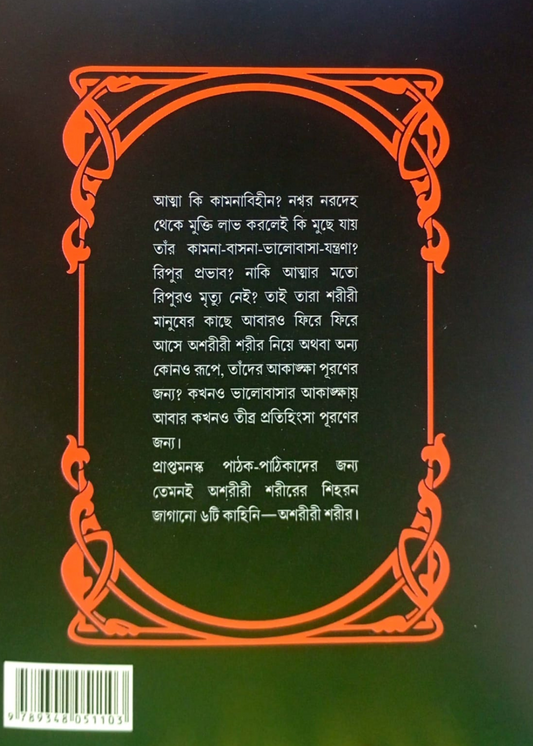 আত্মা কি কামনাবিহীন? নশ্বর নরদেহ
থেকে মুক্তি লাভ করলেই কি মুছে যায়
তাঁর কামনা-বাসনা-ভালোবাসা-যন্ত্রণা?
রিপুর প্রভাব? নাকি আত্মার মতো
রিপুরও মৃত্যু নেই? তাই তারা শরীরী
মানুষের কাছে আবারও ফিরে ফিরে
আসে অশরীরী শরীর নিয়ে অথবা অন্য
কোনও রূপে, তাঁদের আকাঙ্ক্ষা পূরণের
জন্য? কখনও ভালোবাসার আকাঙ্ক্ষায়
আবার কখনও তীব্র প্রতিহিংসা পূরণের
জন্য।
প্রাপ্তমনস্ক পাঠক-পাঠিকাদের জন্য
তেমনই অশরীরী শরীরের শিহরন
জাগানো ৬টি কাহিনি—অশরীরী শরীর।
9 789348 051103